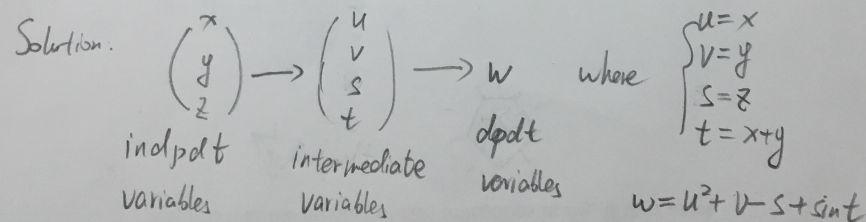 Solution. (x y z) → (u v s t) → w where { u = x
v = y
s = z
t = x+y
indpdt variables
intermediate variables
dpdt variables
w = u² + v - s + sin t